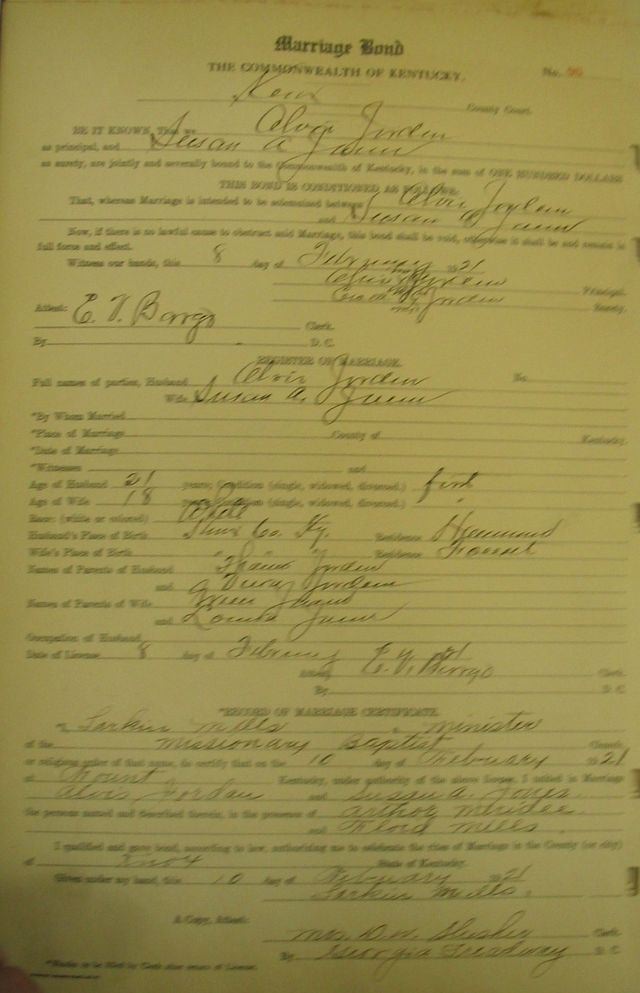 Marriage Bond
THE COMMONWEALTH OF KENTUCKY. No.
Knox County Court.
BE IT KNOWN, That we Alvis Jorden
as principal, and Susan A
as surety, are jointly and severally bound to the Commonwealth of Kentucky, in the sum of ONE HUNDRED DOLLARS
THIS BOND IS CONDITIONED AS FOLLOWS:
That, whereas Marriage is intended to be solemnized between Alvis
and Susan A
Now, if there is no lawful cause to obstruct said Marriage, this bond shall be void, otherwise it shall be and remain in
full force and effect.
Witness our hands, this 8 day of February 1921
Alvis Jorden Principal.
Jorden Surety.
Attest: E. V. Bargo Clerk.
By D. C.
REGISTER OF MARRIAGE.
Full names of parties, Husband Alvis Jorden No.
Wife Susan A.
*By Whom Married
*Place of Marriage County of Kentucky.
*Date of Marriage
*Witnesses and
Age of Husband 21 years; Condition (single, widowed, divorced.) first
Age of Wife 18 years; Condition (single, widowed, divorced.) "
Race: (white or colored)
Husband's Place of Birth Knox Co. Ky. Residence
Wife's Place of Birth " " " Residence
Names of Parents of Husband Jorden
and Jorden
Names of Parents of Wife
and
Occupation of Husband
Date of License 8 day of February 21
Attest: E. V. Bargo Clerk.
By D. C.
*RECORD OF MARRIAGE CERTIFICATE.
I, Larkin Mills a minister
of the missionary Baptist Church,
or religious order of that name, do certify that on the 10 day of February 1921
at Kentucky, under authority of the above license, I united in Marriage
Alvis Jordan and Susan A. Jones
the persons named and described therein, in the presence of arthor
and Floid mills.
I qualified and gave bond, according to law, authorizing me to celebrate the rites of Marriage in the County (or city)
of Knox State of Kentucky.
Given under my hand, this 10 day of February 1921
Larkin Mills.
A Copy, Attest:
Mrs. D. W. Slusher Clerk
By Georgia Treadway D. C.
*Blanks to be filled by Clerk after return of License.